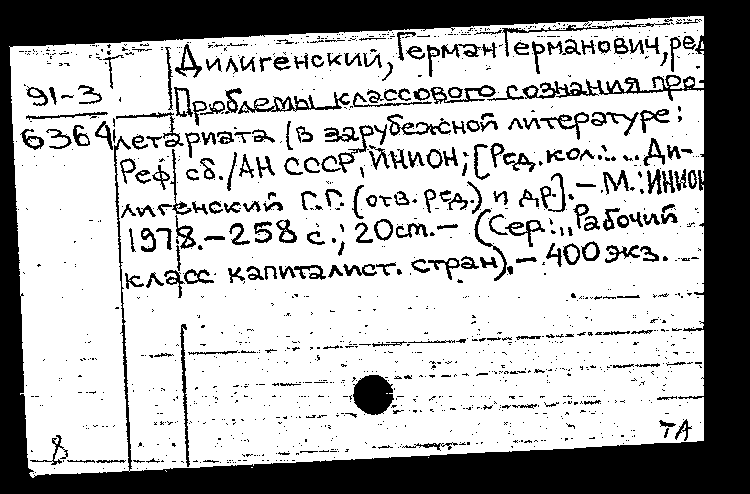 Дилигенский, Герман Германович, ред
91-3
Проблемы классового сознания про-
6364
летариата (в зарубежной литературе:
Реф. сб./АН СССР, ИНИОН; [Ред. кол.:... Ди-
лигенский Г.Г. (отв. ред.) и др.].— М.: ИНИОН
1978.—258 с.; 20 см.— (Сер.: „Рабочий
класс капиталист. стран).— 400 экз.
8
ТА